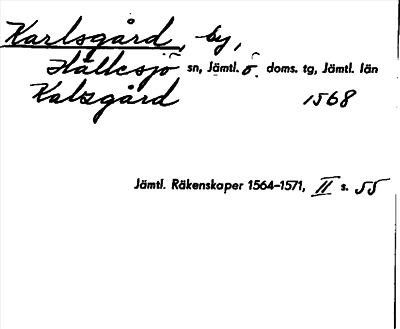 Karlsgård, by,
Hällesjö sn, Jämtl. ö. doms. tg, Jämtl. län
Kalzgård 1568
Jämtl. Räkenskaper 1564–1571, II s. 55